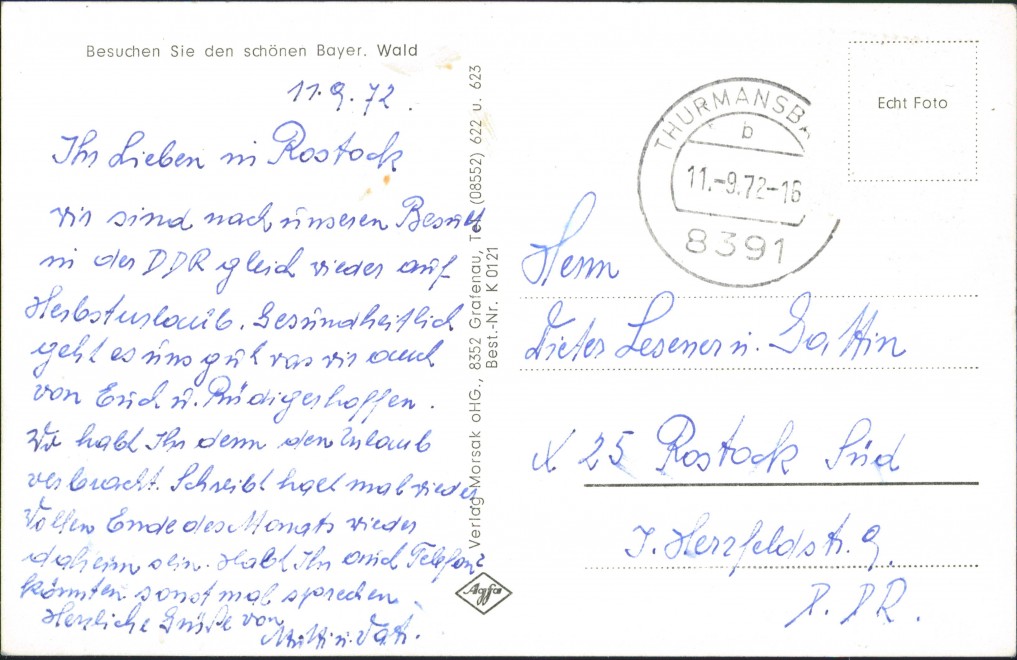 Besuchen Sie den schönen Bayer. Wald
11.9.72.
Ihr Lieben in Rostock
wir sind nach unseren Besuch
in der DDR gleich wieder auf
Herbsturlaub. Gesundheitlich
geht es uns gut was wir auch
von Euch u. Rüdiger hoffen.
Wo habt Ihr denn den Urlaub
verbracht. Schreibt halt mal wieder
Wollen Ende des Monats wieder
daheim sein. Habt Ihr auch Telefon?
könnten sonst mal sprechen.
Herzliche Grüße von
Mutti u. Vati.
Verlag Morsak oHG., 8352 Grafenau, Tel. (08552) 622 u. 623
Best.-Nr. K 0121
Agfa
THURMANSBA
b
11.-9.72-16
8391
Echt Foto
Herrn
Dieter Lesener u. Gattin
X 25 Rostock Süd
J. Herzfeldstr. 9
D. DR.